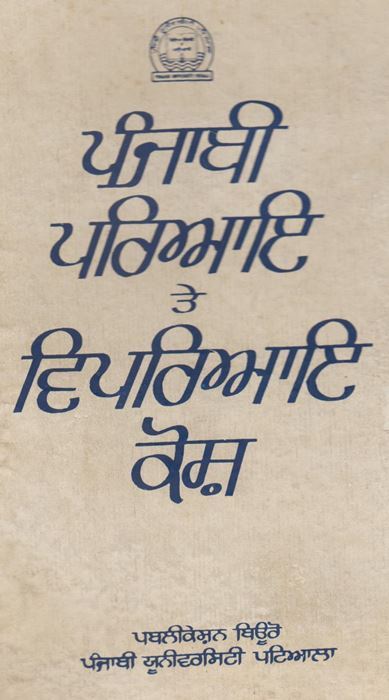 ਪੰਜਾਬੀ
ਪਰਿਆਇ
ਤੇ
ਵਿਪਰਿਆਇ
ਕੋਸ਼
ਪਬਲੀਕੇਸ਼ਨ ਬਿਊਰੋ
ਪੰਜਾਬੀ ਯੂਨੀਵਰਸਿਟੀ ਪਟਿਆਲਾ